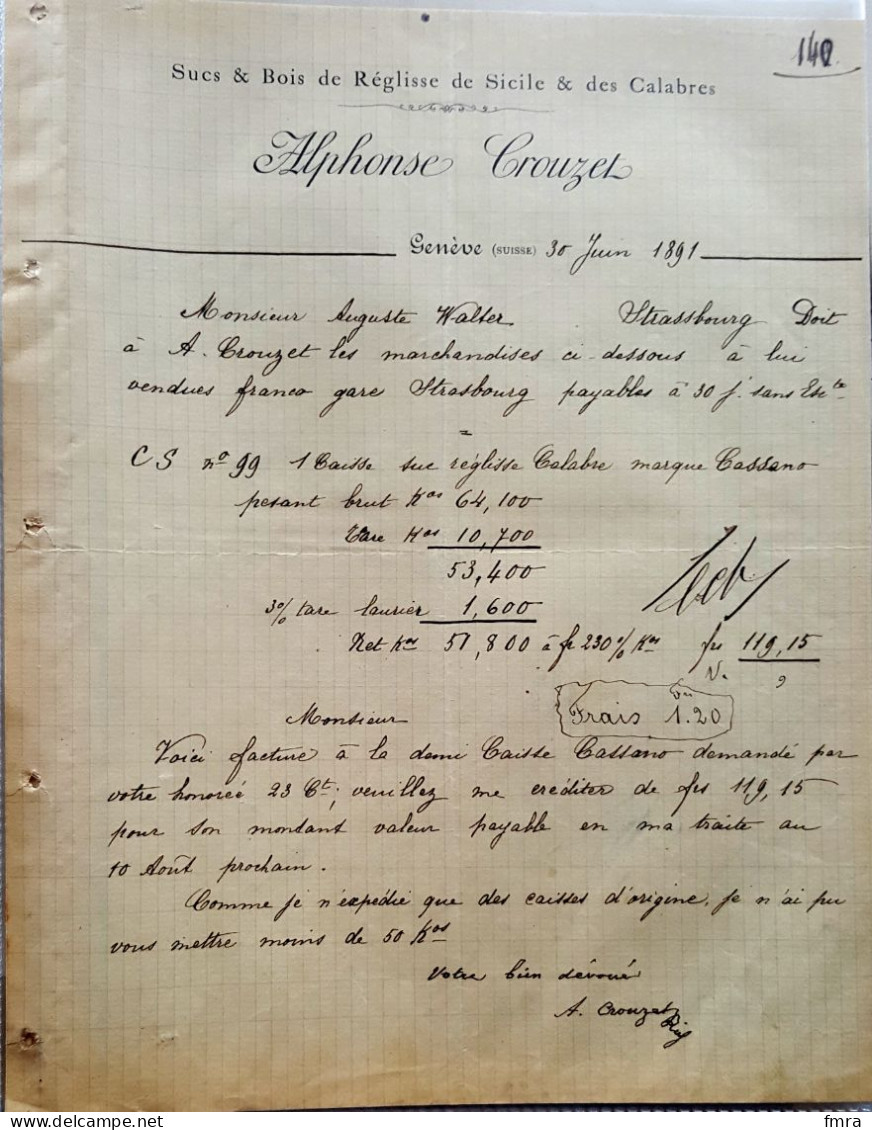 140
Sucs & Bois de Réglisse de Sicile & des Calabres
Alphonse Crouzet
Genève (SUISSE) 30 Juin 1891
Monsieur Auguste Walter Strassbourg Doit
à A. Crouzet les marchandises ci-dessous à lui
vendues franco gare Strasbourg payables à 30 j. sans Escte
=
C S no 99 1 Caisse suc réglisse Calabre marque Cassano
pesant brut Kos 64,100
Tare Kos 10,700
53,400
3% tare laurier 1,600
Net Kos 51,800 à fr 230 % Kos frs 119,15
Frais 1.20
Monsieur
Voici facture à la demi Caisse Cassano demandé par
votre honorée 23 Ct; veuillez me créditer de frs 119,15
pour son montant valeur payable en ma traite au
10 Août prochain.
Comme je n'expédie que des caisses d'origine, je n'ai pu
vous mettre moins de 50 Kos
Votre bien dévoué
A. Crouzet
fmra